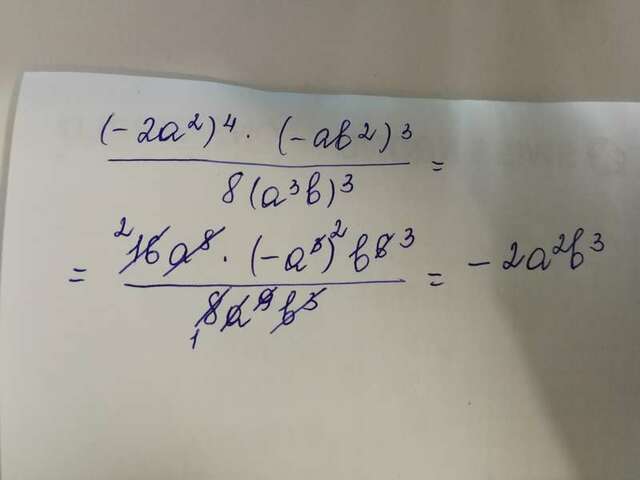 (-2a²)⁴ · (-ab²)³ / 8(a³b)³ =
= ²16a⁸ · (-a³)² b⁶ ³ / ₁8a⁹b³ = -2a²b³